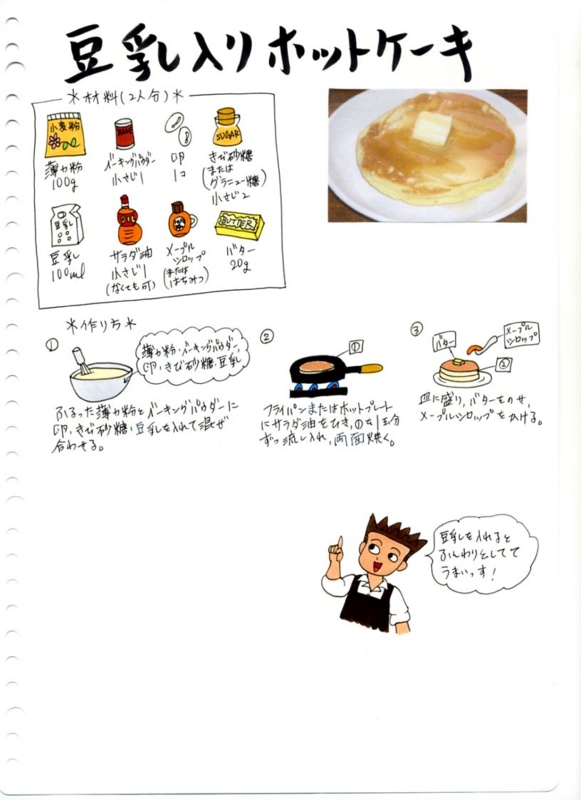 豆乳入りホットケーキ
*材料(2人分)*
小麦粉
薄力粉
100g
ベーキングパウダー
小さじ1
卵
1コ
SUGAR
きび砂糖
(または
グラニュー糖)
小さじ2
豆乳
豆乳
100ml
サラダ油
小さじ1
(なくても可)
メープル
シロップ
(または
はちみつ)
BUTTER
バター
20g
*作り方*
①
薄力粉・ベーキングパウダー
卵・きび砂糖・豆乳
ふるった薄力粉とベーキングパウダーに
卵、きび砂糖、豆乳を入れて混ぜ
合わせる。
②
①
フライパンまたはホットプレート
にサラダ油をひき、①を1玉分
ずつ流し入れ、両面焼く。
③
バター
メープル
シロップ
②
皿に盛り、バターをのせ、
メープルシロップをかける。
豆乳を入れると
ふんわりとしてて
うまいっす!